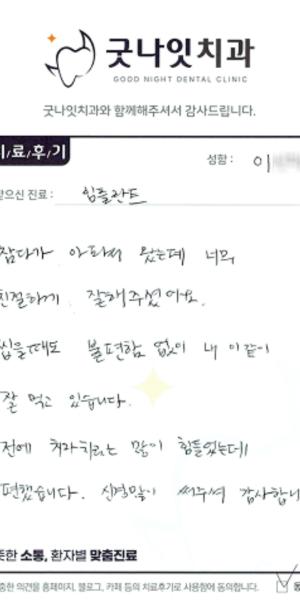 굿나잇치과
GOOD NIGHT DENTAL CLINIC
굿나잇치과와 함께해주셔서 감사드립니다.
료/후/기
성함 : 이
받으신 진료 : 임플란트
참다가 아파서 왔는데 너무
친절하게 잘해주셨어요.
씹을때도 불편함 없이 내 이같이
잘 먹고 있습니다.
전에 치과치료는 많이 힘들었는데
편했습니다. 신경많이 써주셔 감사합니
뜻한 소통, 환자별 맞춤진료
중한 의견을 홈페이지, 블로그, 카페 등의 치료후기로 사용함에 동의합니다.